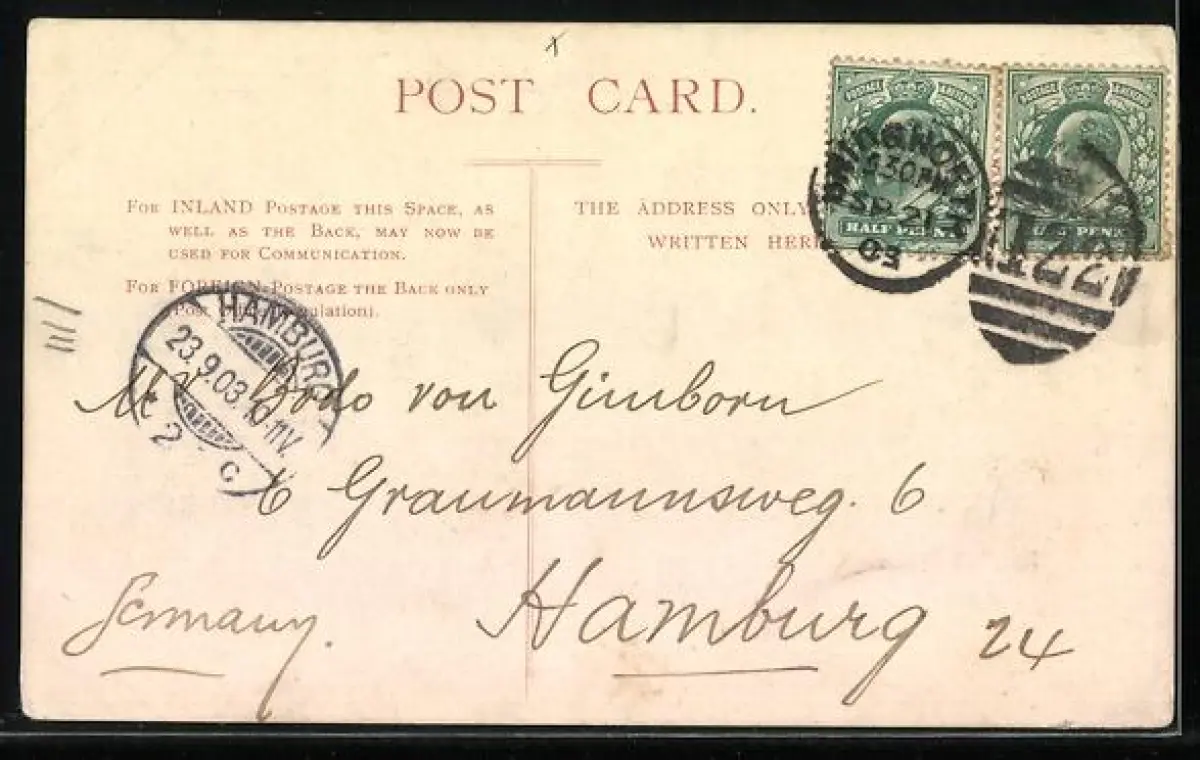 POST CARD.
FOR INLAND POSTAGE THIS SPACE, AS
WELL AS THE BACK, MAY NOW BE
USED FOR COMMUNICATION.
FOR FOREIGN POSTAGE THE BACK ONLY
(POST
THE ADDRESS ONLY
WRITTEN HERE
HALF PENNY
6 30 PM
SP 21
03
HAMBURG
23.9.03.10-11V.
2 c.
Mr Bodo von Gimborn
6 Graumannsweg. 6
Hamburg 24
Germany.